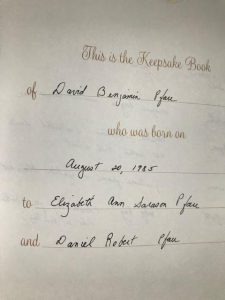 This is the Keepsake Book
of David Benjamin Pfau
who was born on
August 20, 1985
to Elizabeth Ann Sarason Pfau
and Daniel Robert Pfau